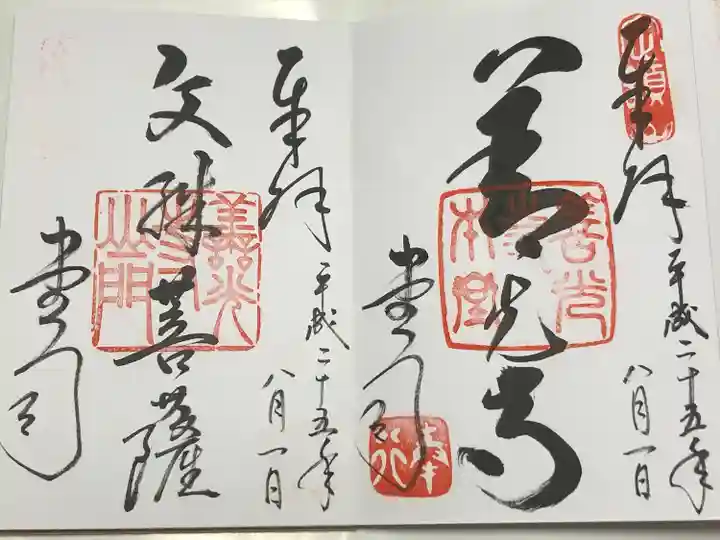 奉拝
平成二十五年
八月一日
善光寺
善光寺本堂
堂司
奉拝
平成二十五年
八月一日
文殊菩薩
善光寺山門
堂司